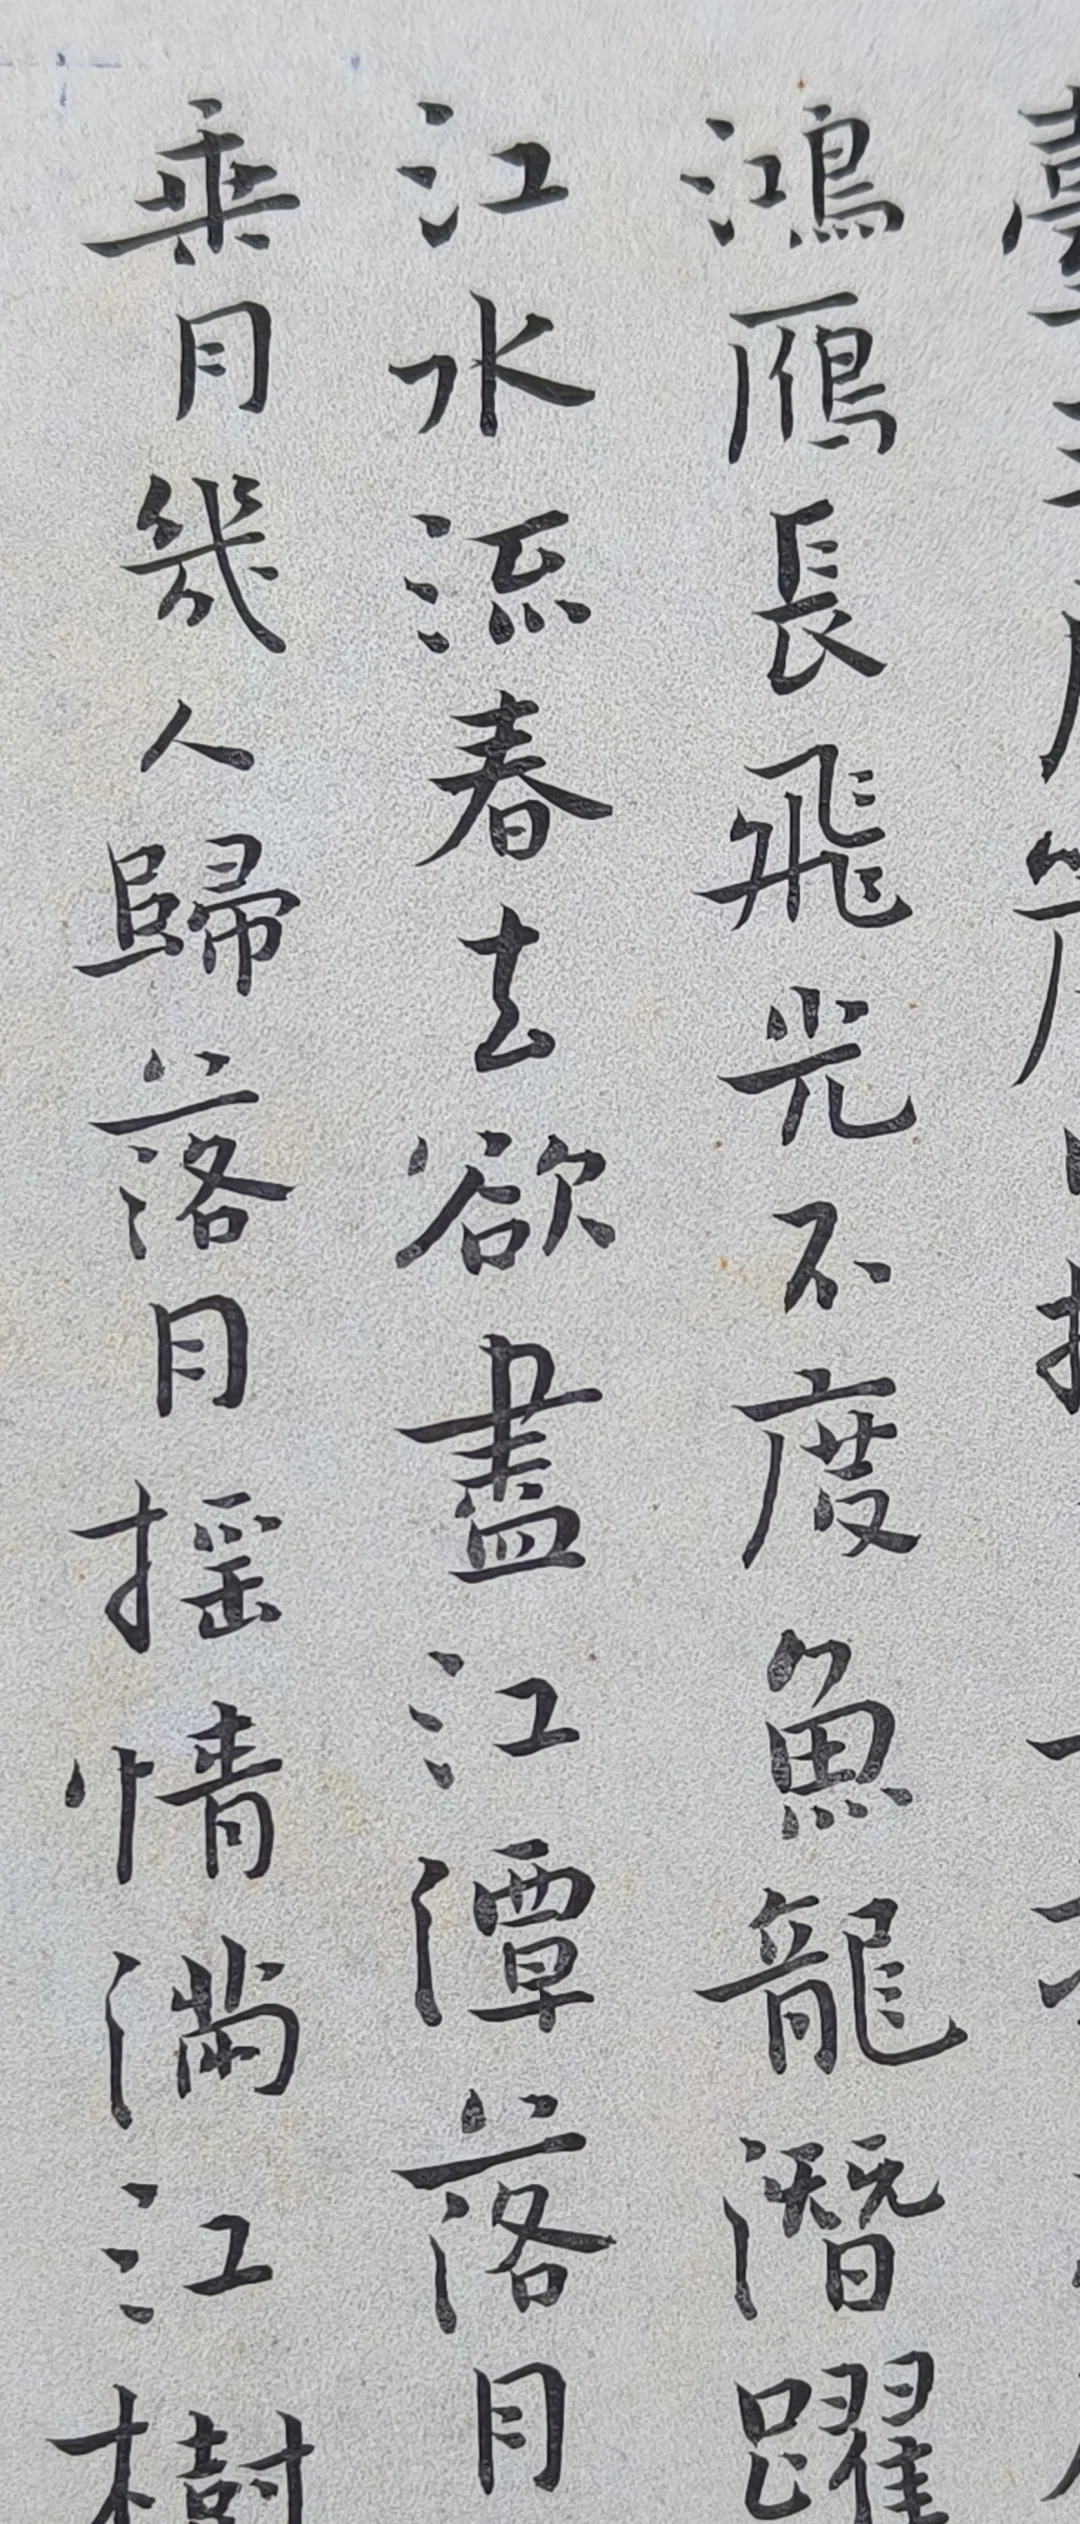 鴻鴈長飛光不度魚龍潛躍
江水流春去欲盡江潭落月
乘月幾人歸落月摇情滿江樹